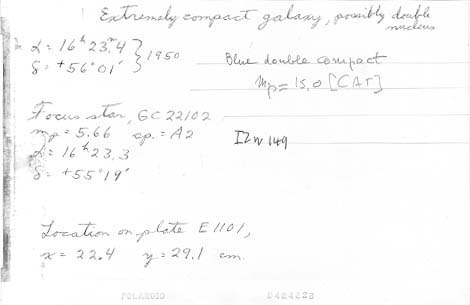 Extremely compact galaxy, possibly double nucleus
α = 16ʰ 23ᵐ.4 } 1950
δ = +56°01′
Blue double compact
mp = 15.0 [CAT]
Focus star, GC 22102
mp = 5.66 sp. = A2
α = 16ʰ 23.3
δ = +55°19′
I Zw 149
Location on plate E 1101,
x = 22.4 y = 29.1 cm.
POLAROID